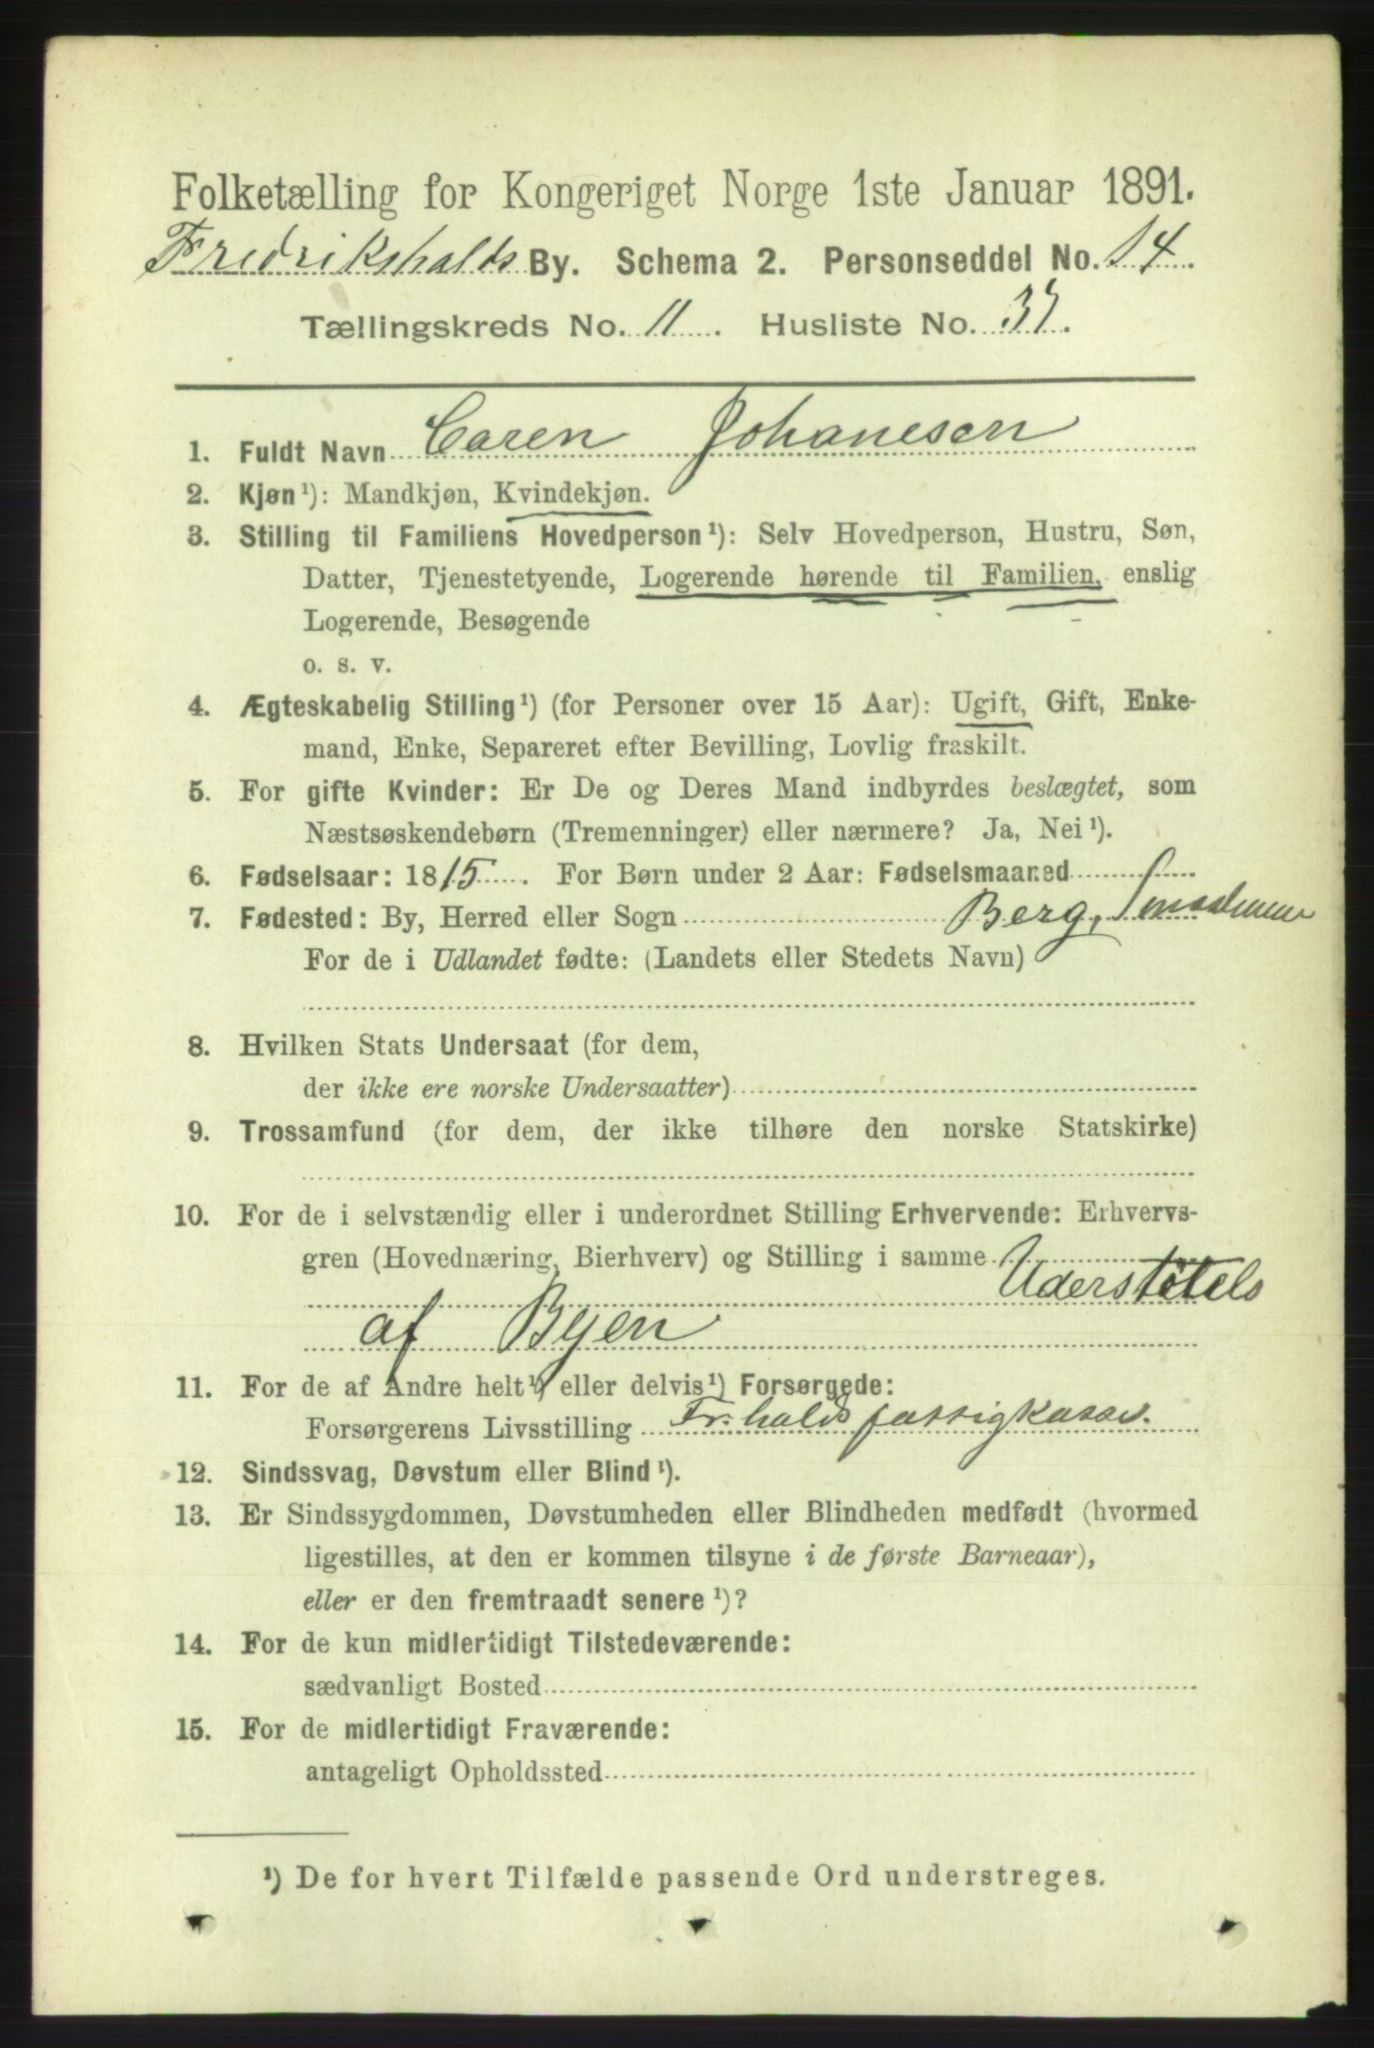 Folketælling for Kongeriget Norge 1ste Januar 1891.
Fredrikshalds By. Schema 2. Personseddel No. 14.
Tællingskreds No. 11. Husliste No. 37.
1. Fuldt Navn Caren Johanesen
2. Kjøn¹): Mandkjøn, Kvindekjøn.
3. Stilling til Familiens Hovedperson¹): Selv Hovedperson, Hustru, Søn,
Datter, Tjenestetyende, Logerende hørende til Familien, enslig
Logerende, Besøgende
o. s. v.
4. Ægteskabelig Stilling¹) (for Personer over 15 Aar): Ugift, Gift, Enke-
mand, Enke, Separeret efter Bevilling, Lovlig fraskilt.
5. For gifte Kvinder: Er De og Deres Mand indbyrdes beslægtet, som
Næstsøskendebørn (Tremenninger) eller nærmere? Ja, Nei¹).
6. Fødselsaar: 1815. For Børn under 2 Aar: Fødselsmaaned
7. Fødested: By, Herred eller Sogn Berg, Smaalenene
For de i Udlandet fødte: (Landets eller Stedets Navn)
8. Hvilken Stats Undersaat (for dem,
der ikke ere norske Undersaatter)
9. Trossamfund (for dem, der ikke tilhøre den norske Statskirke)
10. For de i selvstændig eller i underordnet Stilling Erhvervende: Erhvervs-
gren (Hovednæring, Bierhverv) og Stilling i samme
Uderstøtels
af Byen
11. For de af Andre helt¹) eller delvis¹) Forsørgede:
Forsørgerens Livsstilling Fr:halds fattigkasse.
12. Sindssvag, Døvstum eller Blind¹).
13. Er Sindssygdommen, Døvstumheden eller Blindheden medfødt (hvormed
ligestilles, at den er kommen tilsyne i de første Barneaar),
eller er den fremtraadt senere¹)?
14. For de kun midlertidigt Tilstedeværende:
sædvanligt Bosted
15. For de midlertidigt Fraværende:
antageligt Opholdssted
¹) De for hvert Tilfælde passende Ord understreges.